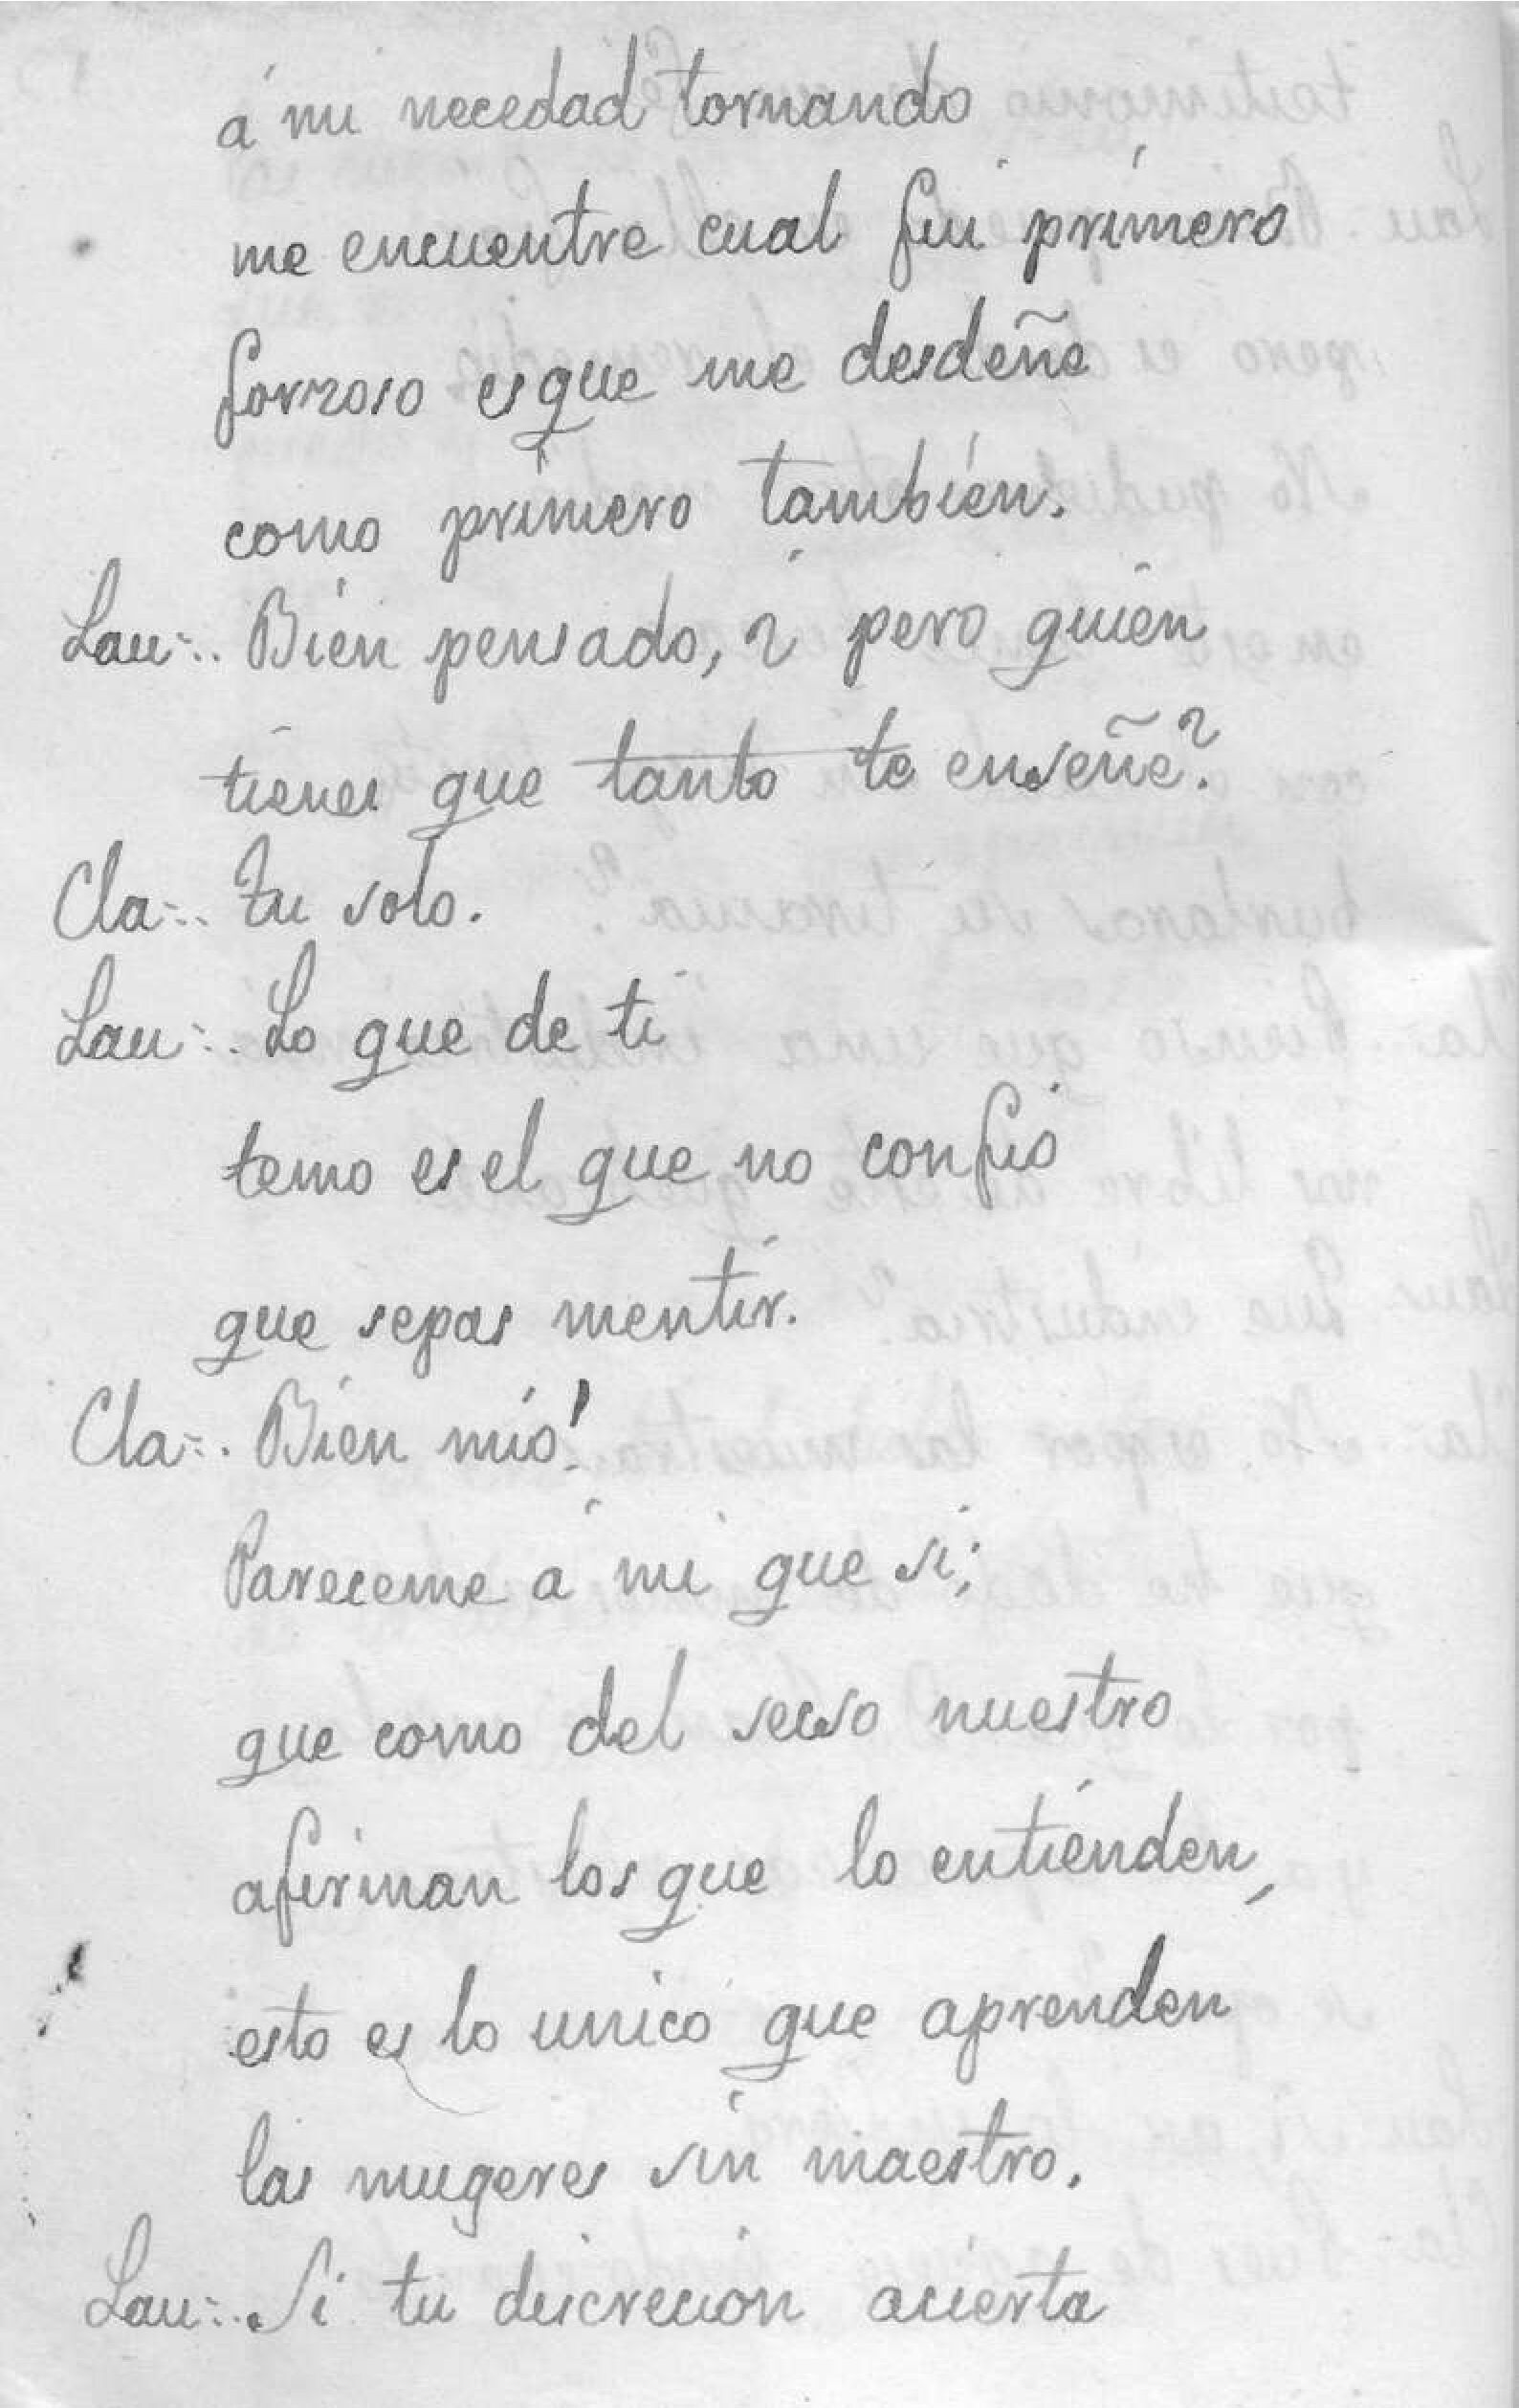 á mi necedad tornando
me encuentre cual fui primero
forzoso es que me desdeñe
como primero también.
Lau=.. Bien pensado, ¿ pero quien
tienes que tanto te enseñe?
Cla=.. Tu solo.
Lau=.. Lo que de ti
temo es el que no confio
que sepas mentir.
Cla=.. Bien mío!
Pareceme á mi que si;
que como del secso nuestro
afirman los que lo entienden,
esto es lo unico que aprenden
las mugeres sin maestro.
Lau=.. Si tu discrecion acierta